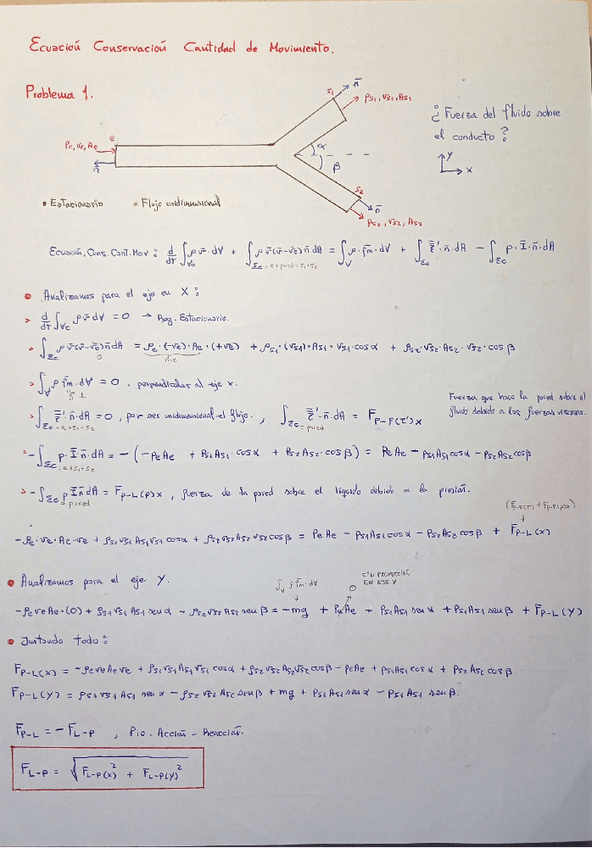 Ecuación Conservación Cantidad de Movimiento.
Problema 1.
S1 n̄ ρs1, vs1, As1
¿Fuerza del fluido sobre
el conducto?
ρe, ve, Ae e
n̄
α
β
y
x
S2 n̄
ρs2, vs2, As2
• Estacionario • Flujo unidimensional
Ecuación, Cons. Cant. Mov: d/dt ∫Vc ρ v̄ · dV + ∫Σc=e+pared+s1+s2 ρ v̄ (v̄ - v̄c) n̄ dA = ∫V ρ · f̄m · dV + ∫Σc τ̄' · n̄ · dA - ∫Σc p · Ī · n̄ · dA
• Analizamos para el eje en X:
> d/dt ∫Vc ρ v̄ dV = 0 → Reg. Estacionario.
> ∫Σc ρ v̄ (v̄ - v̄c) n̄ dA = ρe · (-ve) · Ae · (+ve) + ρs1 · (vs1) · As1 · vs1 · cos α + ρs2 · vs2 · As2 · vs2 · cos β
> ∫V ρ f̄m · dV = 0, perpendicular al eje x.
Fuerza que hace la pared sobre el
fluido debido a las fuerzas viscosas.
> ∫Σc=e+s1+s2 τ̄' · n̄ · dA = 0, por ser unidimensional el flujo., ∫Σc=pared τ̄' · n̄ · dA = FP-F(τ')x
> -∫Σc=e+s1+s2 p · Ī · n̄ · dA = - (-peAe + Ps1As1 cos α + Ps2As2 cos β) = PeAe - ps1As1 cos α - ps2As2 cos β
> -∫Σc=pared p Ī n̄ dA = FP-L(p)x, fuerza de la pared sobre el líquido debido a la presión.
-ρe · ve · Ae · ve + ρs1 vs1 As1 vs1 cos α + ρs2 vs2 As2 vs2 cos β = PeAe - ps1As1 cos α - Ps2As2 cos β + FP-L(x)
• Analizamos para el eje Y.
∫V ρ f̄m · dV
SIN PROYECCIÓN
EN EJE Y
0
-ρeveAe · (0) + ρs1 vs1 As1 vs1 sen α - ρs2 vs2 As2 sen β = -mg + PeAe - Ps1As1 sen α + Ps1As1 sen β + FP-L(y)
• Juntando todo:
FP-L(x) = -ρeveAeve + ρs1 vs1 As1 vs1 cos α + ρs2 vs2 As2 vs2 cos β - PeAe + ps1As1 cos α + Ps2As2 cos β
FP-L(y) = ρs1 vs1 As1 sen α - ρs2 vs2 As2 sen β + mg + Ps1As1 sen α - Ps1As1 sen β.
FP-L = -FL-P, Pio. Acción - Reacción.
FL-P = √(FL-P(x)² + FL-P(y)²)